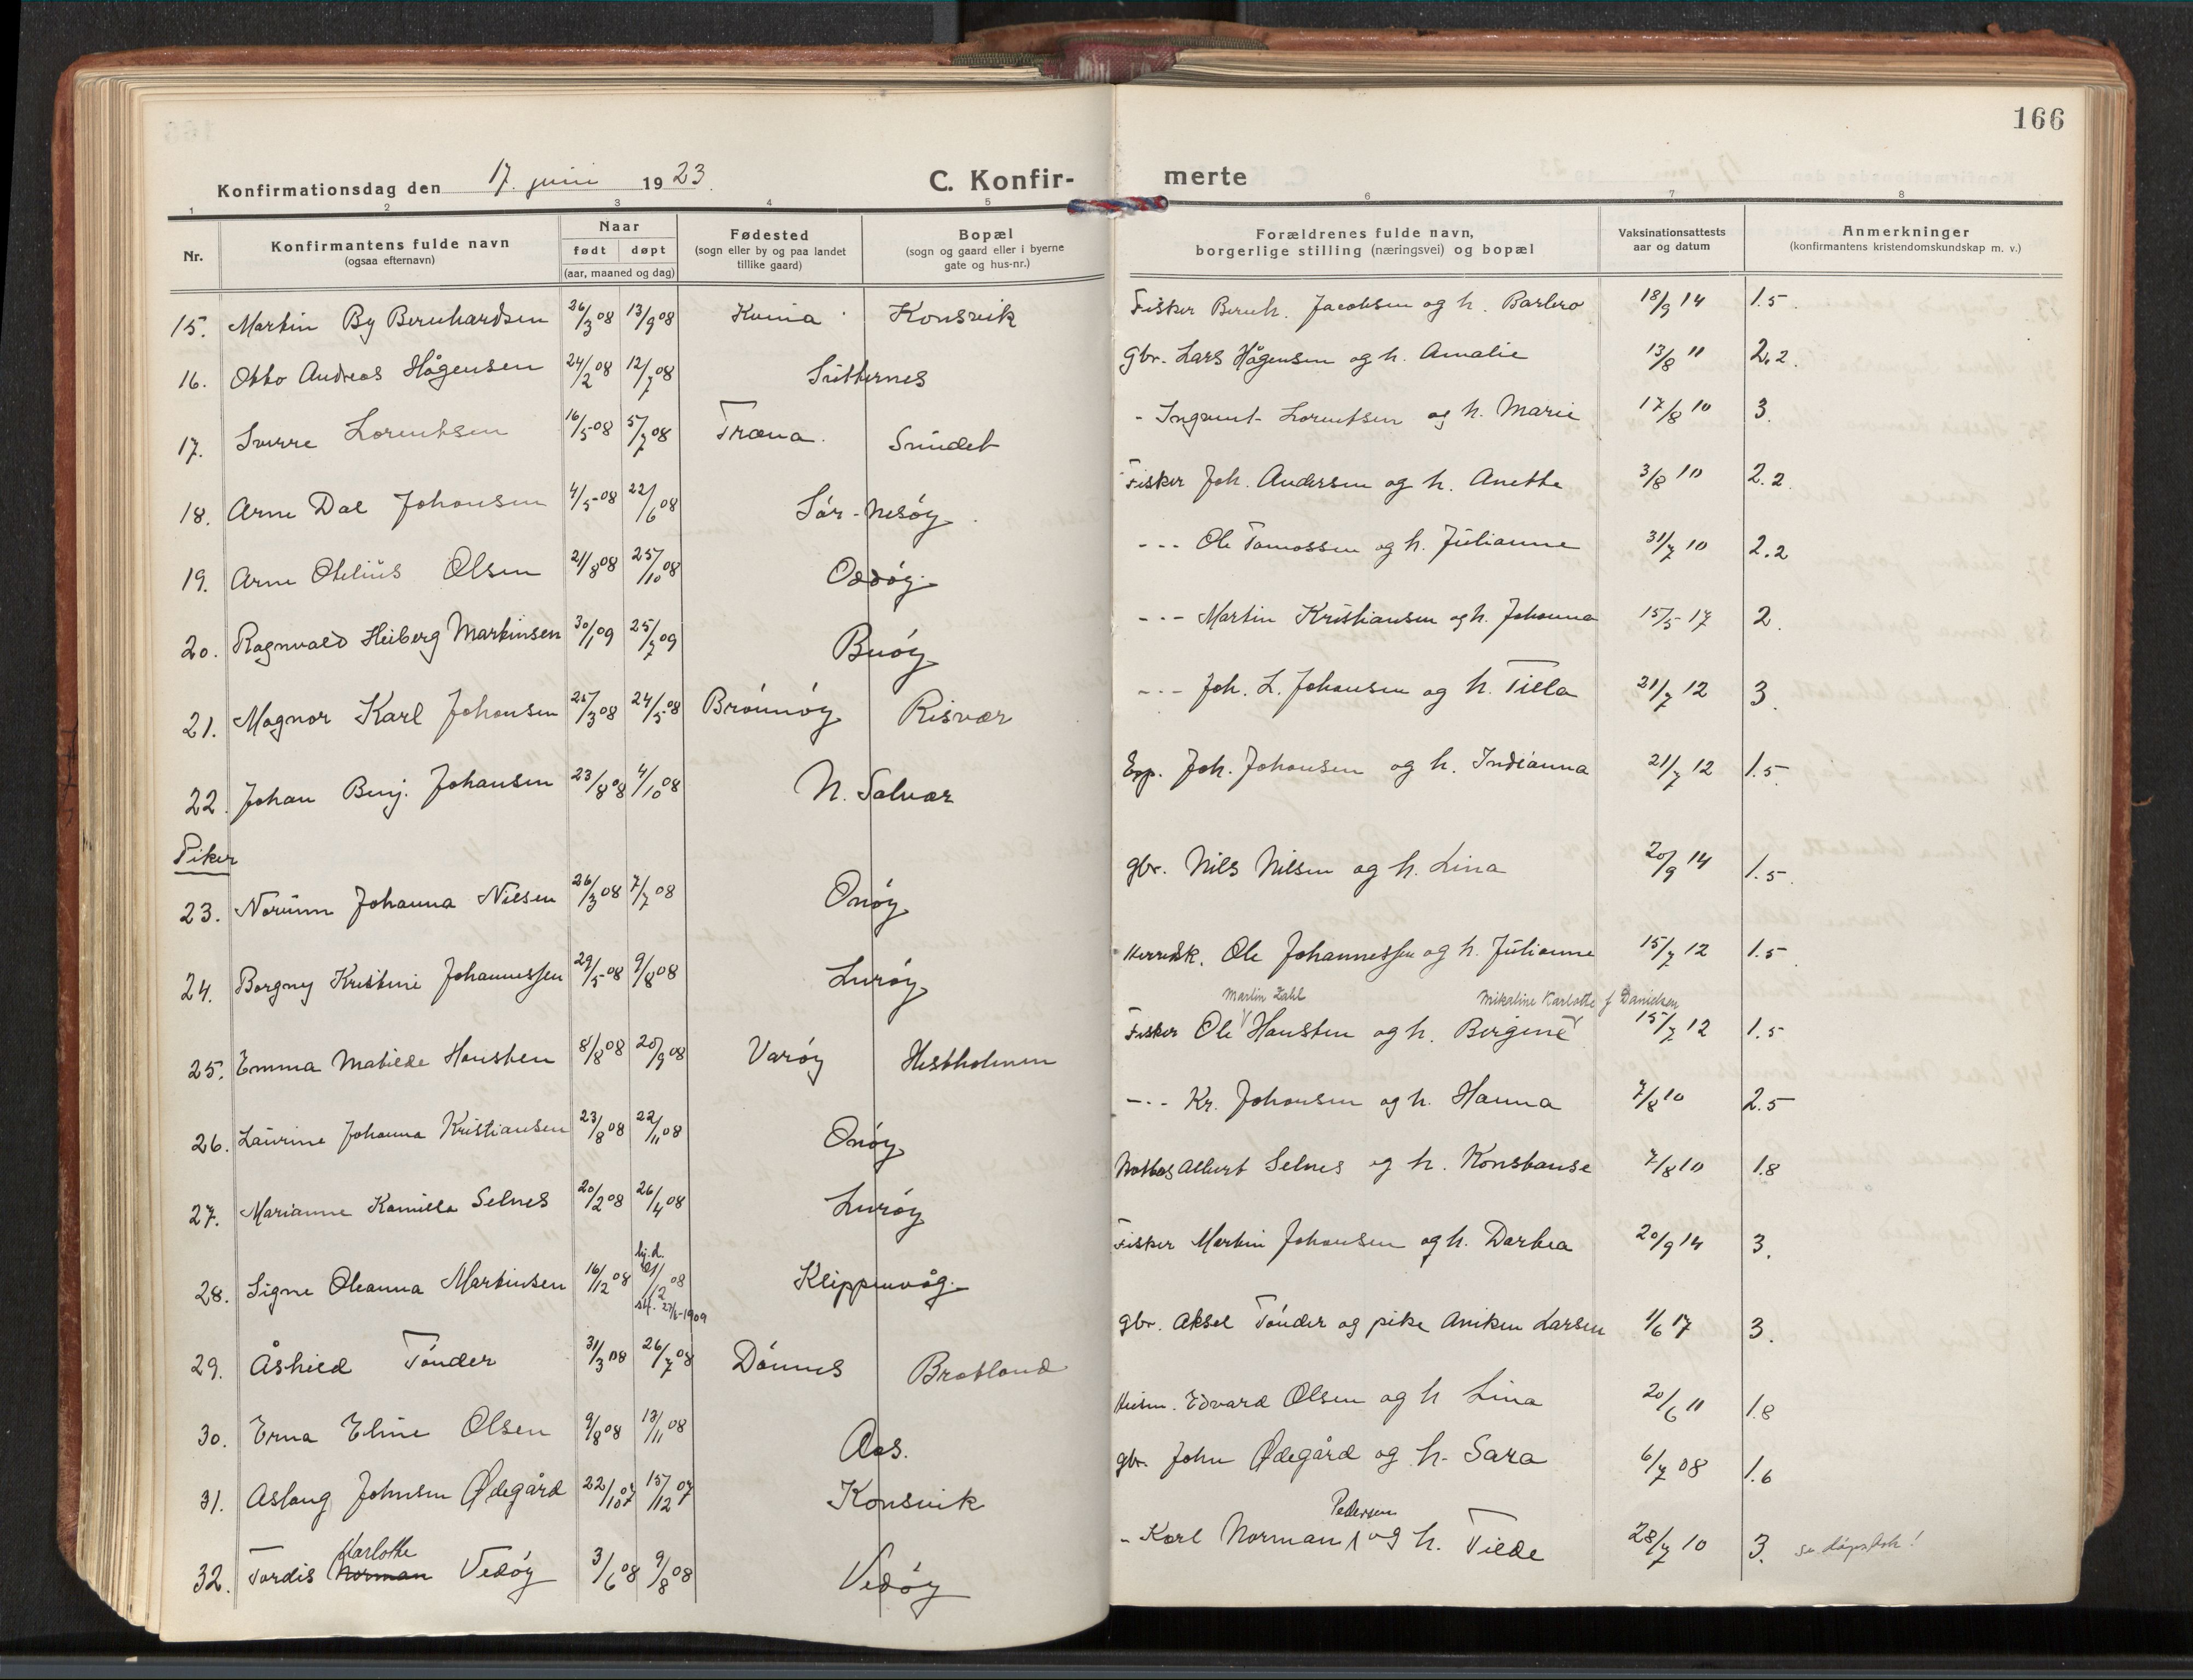 166
Konfirmationsdag den 17. juni 1923.
C. Konfir- merte
1 2 3 4 5 6 7 8
Nr.
Konfirmantens fulde navn
(ogsaa efternavn)
Naar
født døpt
(aar, maaned og dag)
Fødested
(sogn eller by og paa landet
tillike gaard)
Bopæl
(sogn og gaard eller i byerne
gate og hus-nr.)
Forældrenes fulde navn,
borgerlige stilling (næringsvei) og bopæl
Vaksinationsattests
aar og datum
Anmerkninger
(konfirmantens kristendomskundskap m. v.)
15. Martin By Bernhardsen 26/3 08 13/9 08 Kvina Konsvik Fisker Bernh. Jacobsen og h. Barbro 18/9 14 1.5.
16. Otto Andreas Hågensen 24/2 08 12/7 08 Sütternes Gbr. Lars Hågensen og h. Amalie 13/8 11 2.2.
17. Sverre Lorentsen 16/5 08 5/7 08 Træna. Sundet - Ingvart Lorentsen og h. Marie 17/8 10 3.
18. Arne Dal Johansen 4/5 08 22/6 08 Sór-Nesóy. Fisker Joh. Andersen og h. Anethe 3/8 10 2.2.
19. Arne Otelius Olsen 21/8 08 25/10 08 Oddóy. --- Ole Tomassen og h. Júlianne 31/7 10 2.2
20. Ragnvald Heiberg Martinsen 30/1 09 25/7 09 Buóy --- Martin Kristiansen og h. Johanna 15/5 17 2.
21. Magnor Karl Johansen 25/3 08 24/5 08 Brónnóy Risvær --- Joh. L. Johansen og h. Tilla 21/7 12 3.
22. Johan Benj. Johansen 23/8 08 4/10 08 N. Solvær Joh. Johansen og h. Indianna 21/7 12 1.5.
Piker
23. Norunn Johanna Nilsen 26/3 08 7/7 08 Onóy gbr. Nils Nilsen og h. Lina 20/9 14 1.5.
24. Borgny Kristine Johannessen 29/5 08 9/8 08 Luróy Herredsk. Ole Johannessen og h. Júlianne 15/7 12 1.5.
Martin Zahl Mikaline Karlotte f Danielsen
25. Emma Matilde Hansten 8/8 08 20/9 08 Varóy Hestholmen Fisker Ole Hansten og h. Bergine 15/7 12 1.5
26. Laurine Johanna Kristiansen 23/8 08 22/11 08 Onóy --- Kr. Johansen og h. Hanna 7/8 10 2.5
27. Marianne Kamilla Selnes 20/2 08 26/4 08 Luróy Albert Selnes og h. Konstanse 7/8 10 1.8
hj.d.
28. Signe Oleanna Martinsen 16/12 08 21/12 08 Klippenvåg. Fisker Martin Johansen og h. Dorthea 20/9 14 3.
stf. 27/6-1909
29. Åshild Tónder 31/3 08 26/7 08 Dónnes Bratland gbr. Aksel Tónder og pike Aniken Larsen 1/6 17 3.
30. Erna Eline Olsen 9/8 08 13/11 08 Aas. Husm. Edvard Olsen og h Lina 20/6 11 1.8
31. Aslaug Johnsen Ødegård 22/10 07 15/12 07 Konsvik gbr. John Ødegård og h. Sara 6/7 08 1.6
Karlotte Pedersen
32. Tordis Norman Vedóy 3/6 08 9/8 08 Vedóy - Karl Norman og h. Tilde 28/7 10 3. se dåpsbok!